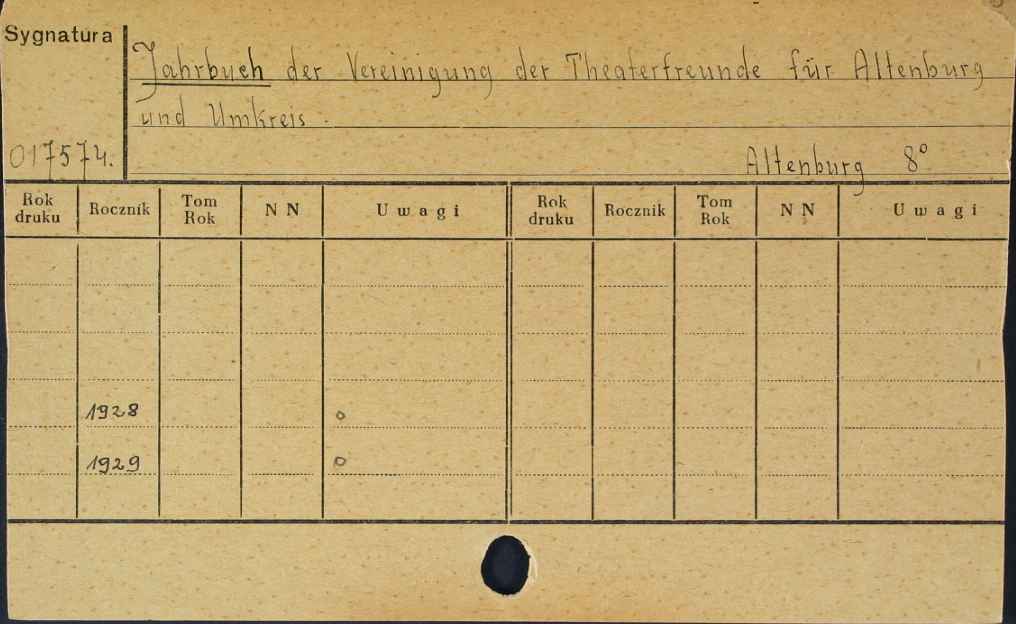 Sygnatura
Jahrbuch der Vereinigung der Theaterfreunde für Altenburg
und Umkreis.
017574.
Altenburg 8°
Rok druku Rocznik Tom Rok NN Uwagi Rok druku Rocznik Tom Rok NN Uwagi
1928 o
1929 o